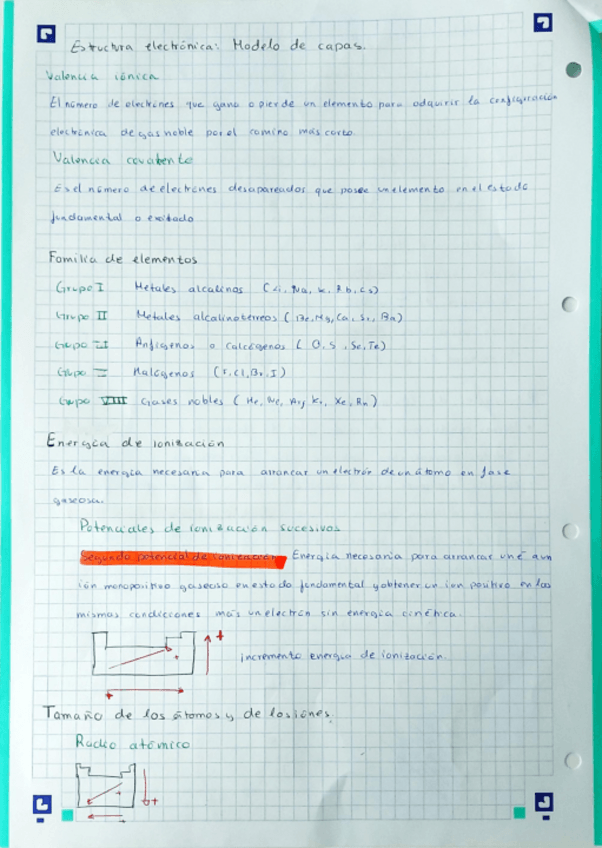 Estructura electrónica: Modelo de capas.
Valencia iónica
El número de electrones que gana o pierde un elemento para adquirir la configuración
electrónica de gas noble por el camino más corto.
Valencia covalente
Es el número de electrones desapareados que posee un elemento en el estado
fundamental o excitado
Familia de elementos
Grupo I Metales alcalinos (Li, Na, K, Rb, Cs)
Grupo II Metales alcalinotérreos (Be, Mg, Ca, Sr, Ra)
Grupo Anfígenos o Calcógenos (O, S, Se, Te)
Grupo Halógenos (F, Cl, Br, I)
Grupo VIII Gases nobles (He, Ne, Ar, Kr, Xe, Rn)
Energía de ionización
Es la energía necesaria para arrancar un electrón de un átomo en fase
gaseosa.
Potenciales de ionización sucesivos
Segundo potencial de ionización Energía necesaria para arrancar un é a un
ión monopositivo gaseoso en estado fundamental y obtener un ion positivo en las
mismas condiciones más un electrón sin energía cinética.
+
+
incremento energía de ionización.
+
Tamaño de los átomos y de los iones.
Radio atómico
+
+
+